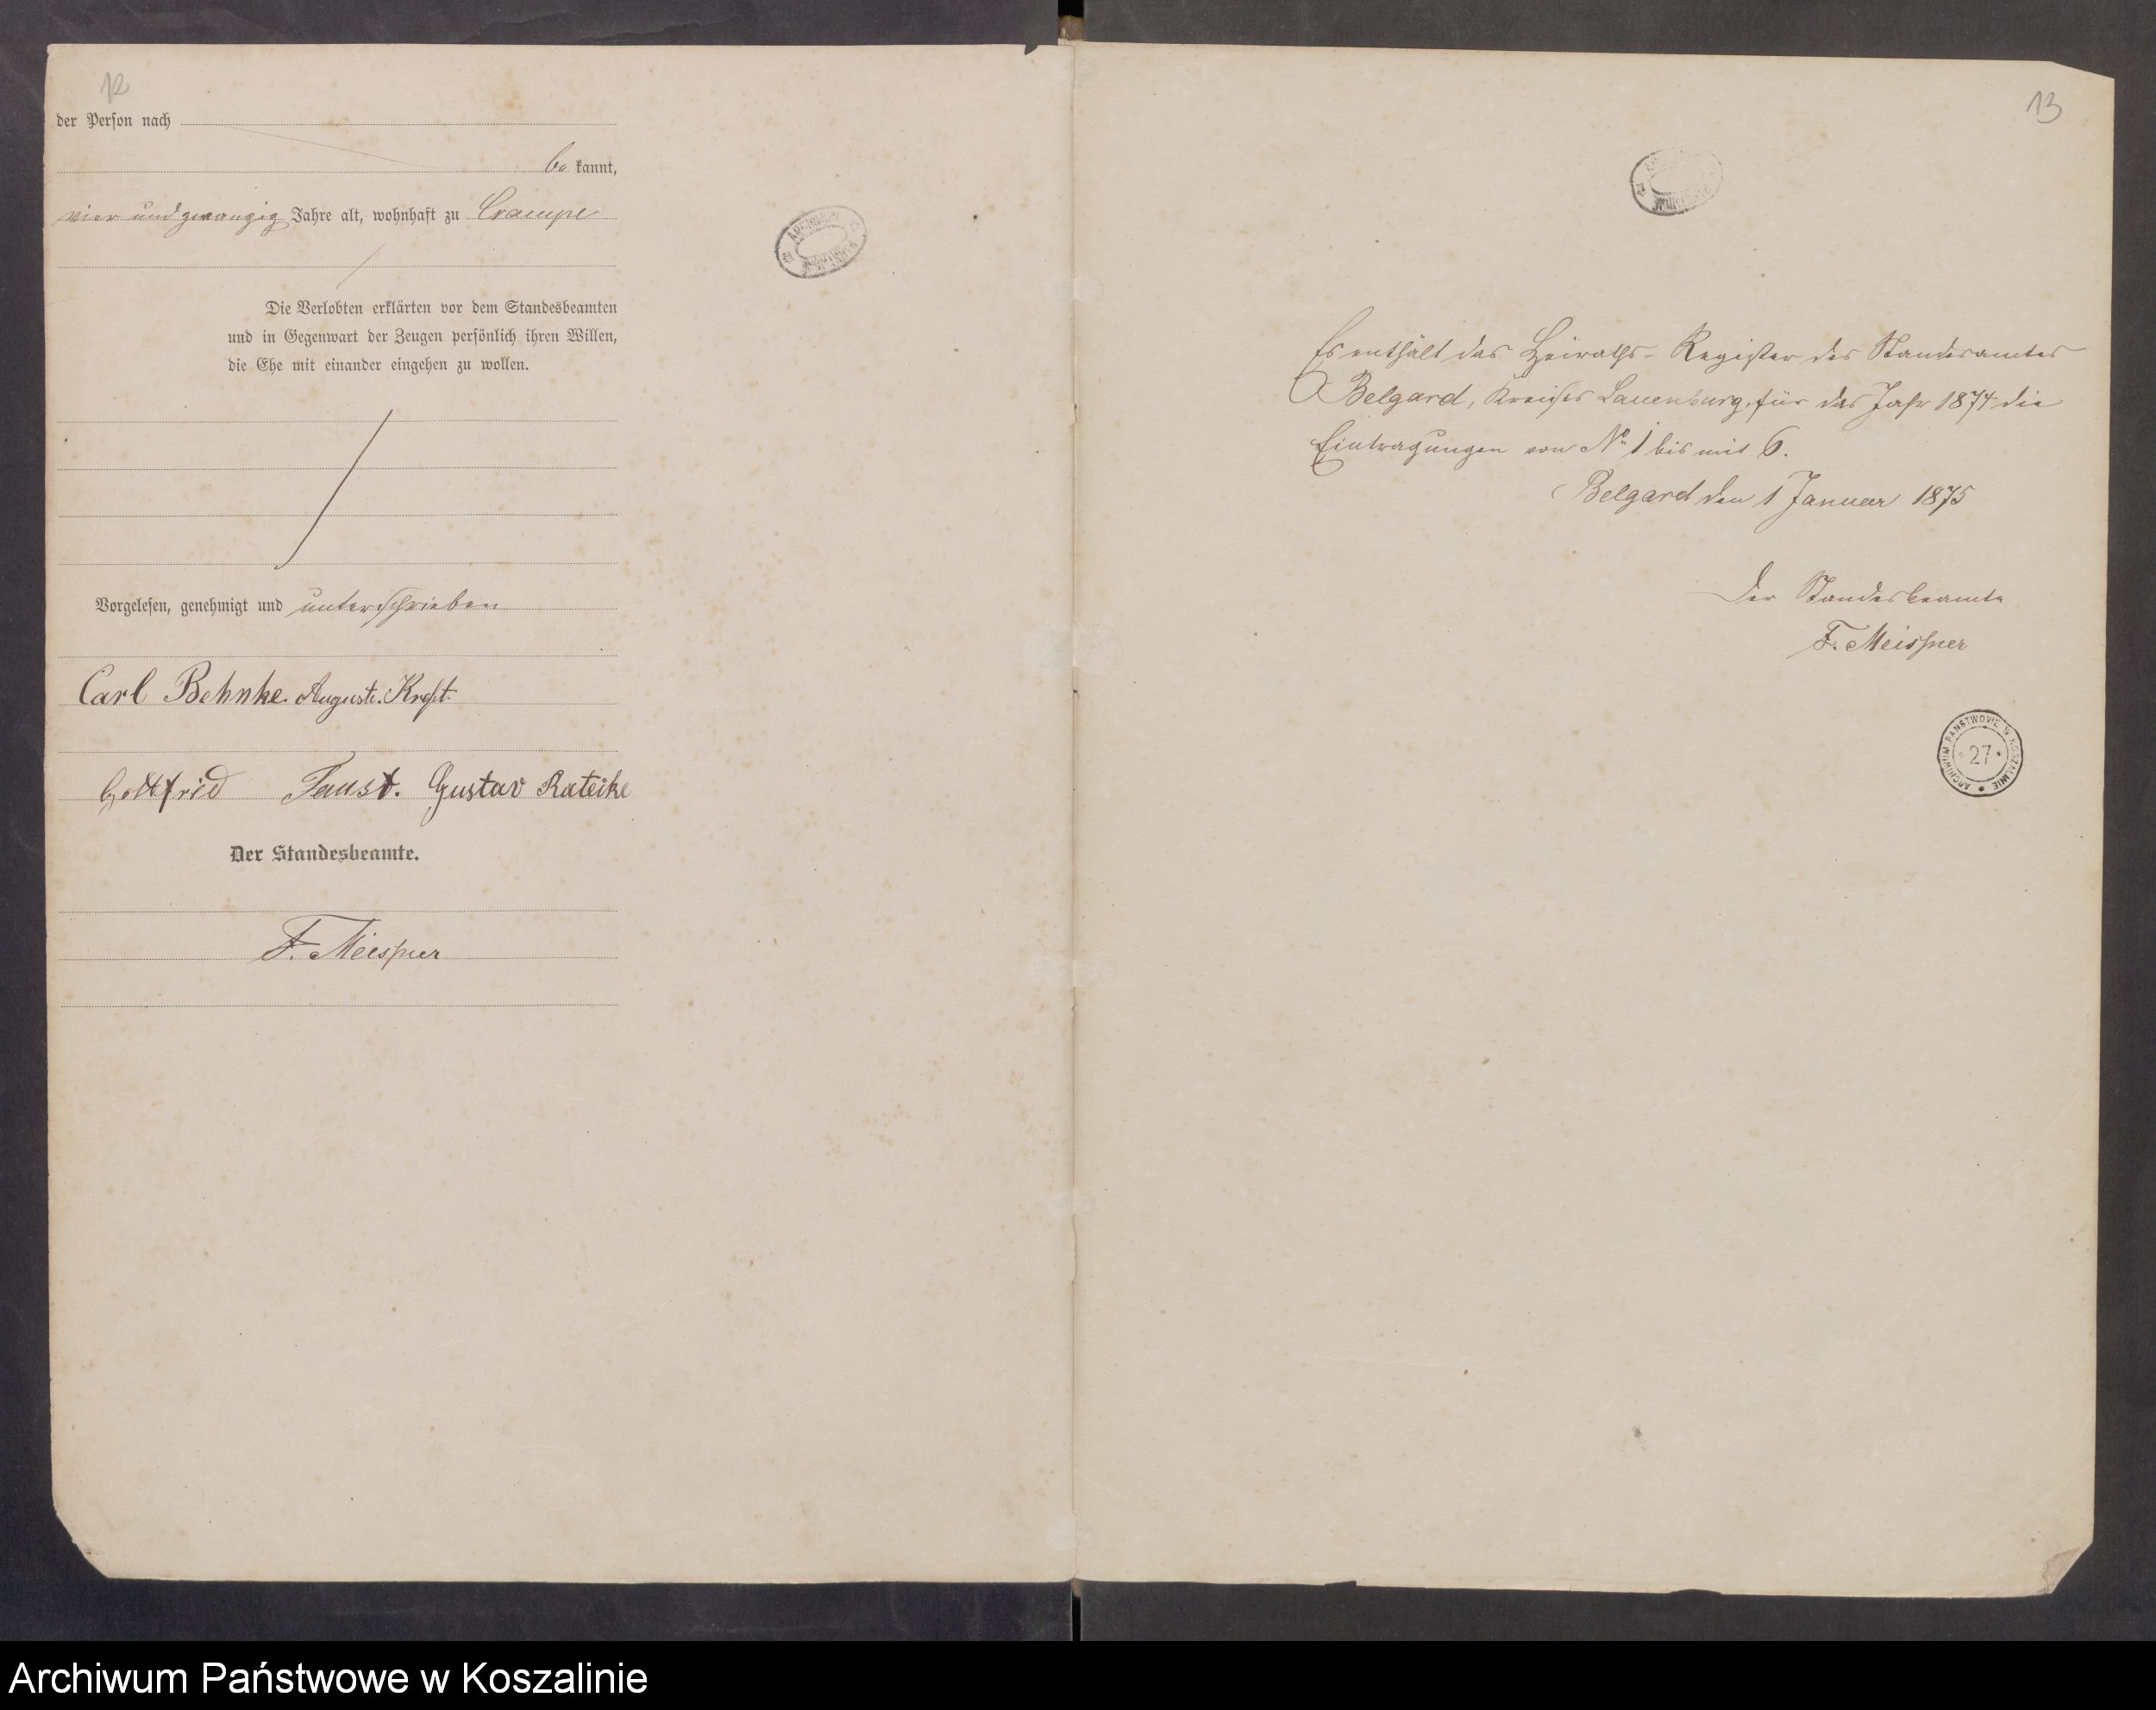 12
der Person nach
be kannt,
vier und zwanzig Jahre alt, wohnhaft zu Crampe
Die Verlobten erklärten vor dem Standesbeamten
und in Gegenwart der Zeugen persönlich ihren Willen,
die Ehe mit einander eingehen zu wollen.
Vorgelesen, genehmigt und unterschrieben
Carl Behnke. Auguste. Kreft.
Gottfried Faust. Gustav Rateike
Der Standesbeamte.
F. Meissner
13
Es enthält das Heiraths-Register des Standesamtes
Belgard, Kreises Lauenburg, für das Jahr 1874 die
Eintragungen von No 1 bis mit 6.
Belgard den 1 Januar 1875
Der Standesbeamte
F. Meissner
ARCHIWUM PAŃSTWOWE W KOSZALINIE
27
Archiwum Państwowe w Koszalinie